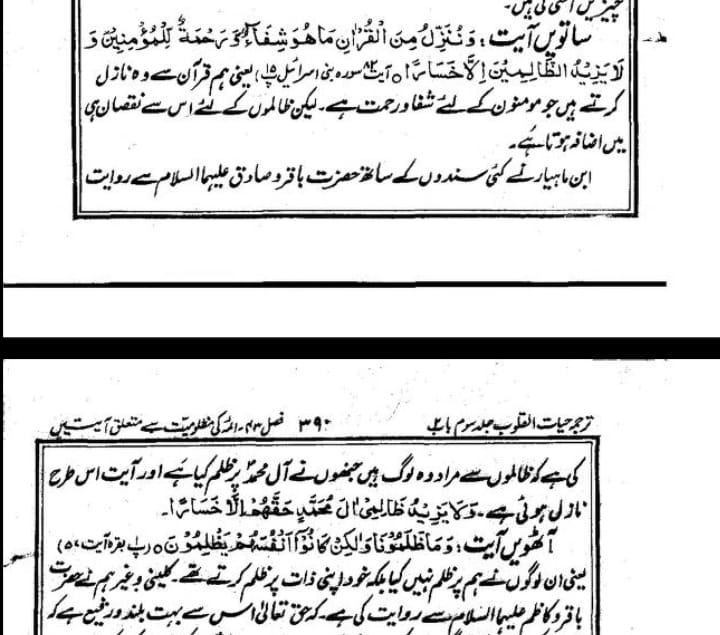 چیزیں اسی کی ہیں۔
ساتویں آیت: وَنُنَزِّلُ مِنَ الْقُرْاٰنِ مَا هُوَ شِفَآءٌ وَّرَحْمَةٌ لِّلْمُؤْمِنِیْنَ وَ
لَا یَزِیْدُ الظَّالِمِیْنَ اِلَّا خَسَارًا ○ آیت ۸۲ سورہ بنی اسرائیل پ ۱۵) یعنی ہم قرآن سے وہ نازل
کرتے ہیں جو مومنون کے لئے شفا و رحمت ہے۔ لیکن ظالموں کے لئے اس سے نقصان ہی
میں اضافہ ہوتا ہے۔
ابن ماہیار نے کئی سندوں کے ساتھ حضرت باقر و صادق علیہما السلام سے روایت
ترجمہ حیات القلوب جلد سوم باب ۳۹۰ فصل ۴۳۔ ائمہ کی مظلومیّت سے متعلق آیتیں
کی ہے کہ ظالموں سے مراد وہ لوگ ہیں جنھوں نے آل محمدؐ پر ظلم کیا ہے اور آیت اس طرح
نازل ہوئی ہے۔ وَلَا یَزِیْدُ ظَالِمِیْ اٰلَ مُحَمَّدٍ حَقَّهُمْ اِلَّا خَسَارًا۔
آٹھویں آیت: وَمَا ظَلَمُوْنَا وَلٰکِنْ کَانُوْٓا اَنْفُسَهُمْ یَظْلِمُوْنَ ○ (پ۱ بقرہ آیت ۵۷)
یعنی ان لوگوں نے ہم پر ظلم نہیں کیا بلکہ خود اپنی ذات پر ظلم کرتے تھے۔ کلینی وغیرہم نے حضرت
باقر و کاظم علیہما السلام سے روایت کی ہے۔ کہ حق تعالیٰ اس سے بہت بلند اور منیع ہے کہ